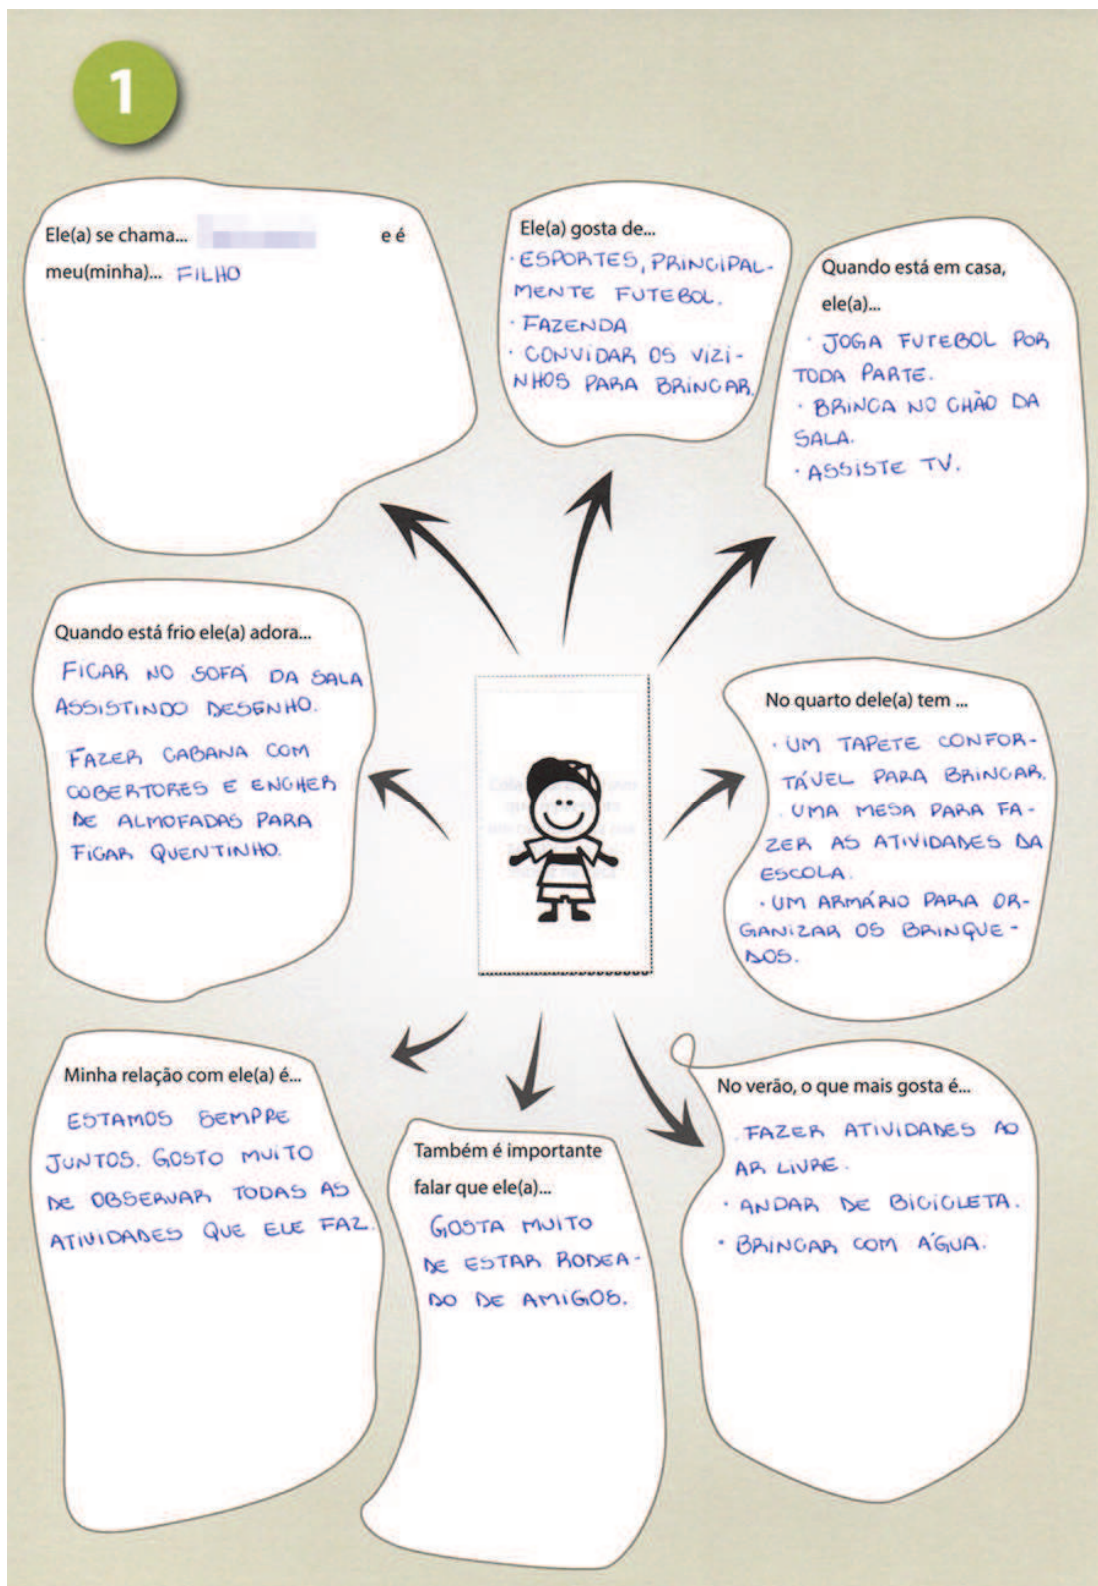 1
Ele(a) se chama... e é
meu(minha)... FILHO
Ele(a) gosta de...
· ESPORTES, PRINCIPAL-
MENTE FUTEBOL.
· FAZENDA
· CONVIDAR OS VIZI-
NHOS PARA BRINCAR.
Quando está em casa,
ele(a)...
· JOGA FUTEBOL POR
TODA PARTE.
· BRINCA NO CHÃO DA
SALA.
· ASSISTE TV.
Quando está frio ele(a) adora...
FICAR NO SOFÁ DA SALA
ASSISTINDO DESENHO.
FAZER CABANA COM
COBERTORES E ENCHER
DE ALMOFADAS PARA
FICAR QUENTINHO.
No quarto dele(a) tem ...
· UM TAPETE CONFOR-
TÁVEL PARA BRINCAR.
· UMA MESA PARA FA-
ZER AS ATIVIDADES DA
ESCOLA.
· UM ARMÁRIO PARA OR-
GANIZAR OS BRINQUE-
DOS.
Minha relação com ele(a) é...
ESTAMOS SEMPRE
JUNTOS. GOSTO MUITO
DE OBSERVAR TODAS AS
ATIVIDADES QUE ELE FAZ.
Também é importante
falar que ele(a)...
GOSTA MUITO
DE ESTAR RODEA-
DO DE AMIGOS.
No verão, o que mais gosta é...
· FAZER ATIVIDADES AO
AR LIVRE.
· ANDAR DE BICICLETA.
· BRINCAR COM ÁGUA.